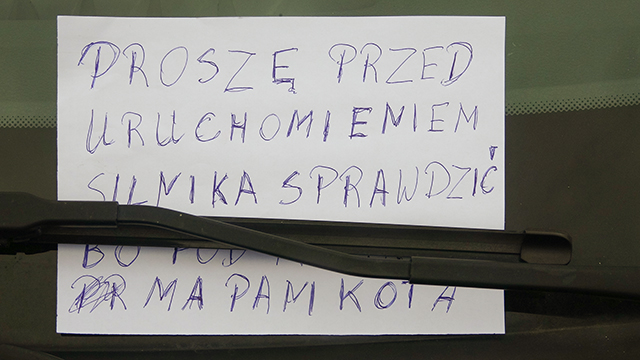 PROSZĘ PRZED
URUCHOMIENIEM
SILNIKA SPRAWDZIĆ
BO POD
MA PAN KOTA